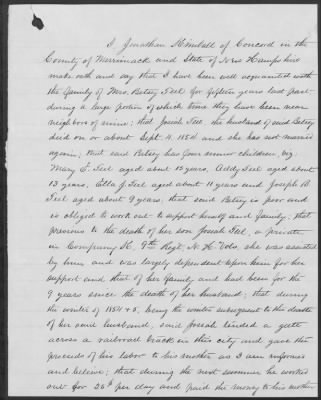 I, Jonathan Kimball of Concord in the
County of Merrimack and State of New Hampshire
make oath and say that I have been well acquainted with
the family of Mrs. Betsey Teel for fifteen years last past
during a large portion of which time they have been near
neighbors of mine; that Josiah Teel, the husband of said Betsey
died on or about Sept. 11, 1854 and she has not married
again; that said Betsey has four minor children, viz:
Mary E. Teel aged about 15 years, Addy Teel aged about
13 years, Ella J. Teel aged about 11 years and Joseph B.
Teel aged about 9 years; that said Betsey is poor and
is obliged to work out to support herself and family; that
previous to the death of her son Josiah Teel, a private
in Company H, 9th Regt. N. H. Vols she was assisted
by him and was largely dependent upon him for her
support and that of her family and had been for the
9 years since the death of her husband; that during
the winter of 1854 & 5, being the winter subsequent to the death
of her said husband, said Josiah tended a gate
across a railroad track in this city and gave the
proceeds of his labor to his mother as I am informed
and believe; that during the next summer he worked
out for 25cts per day and paid the money to his mother